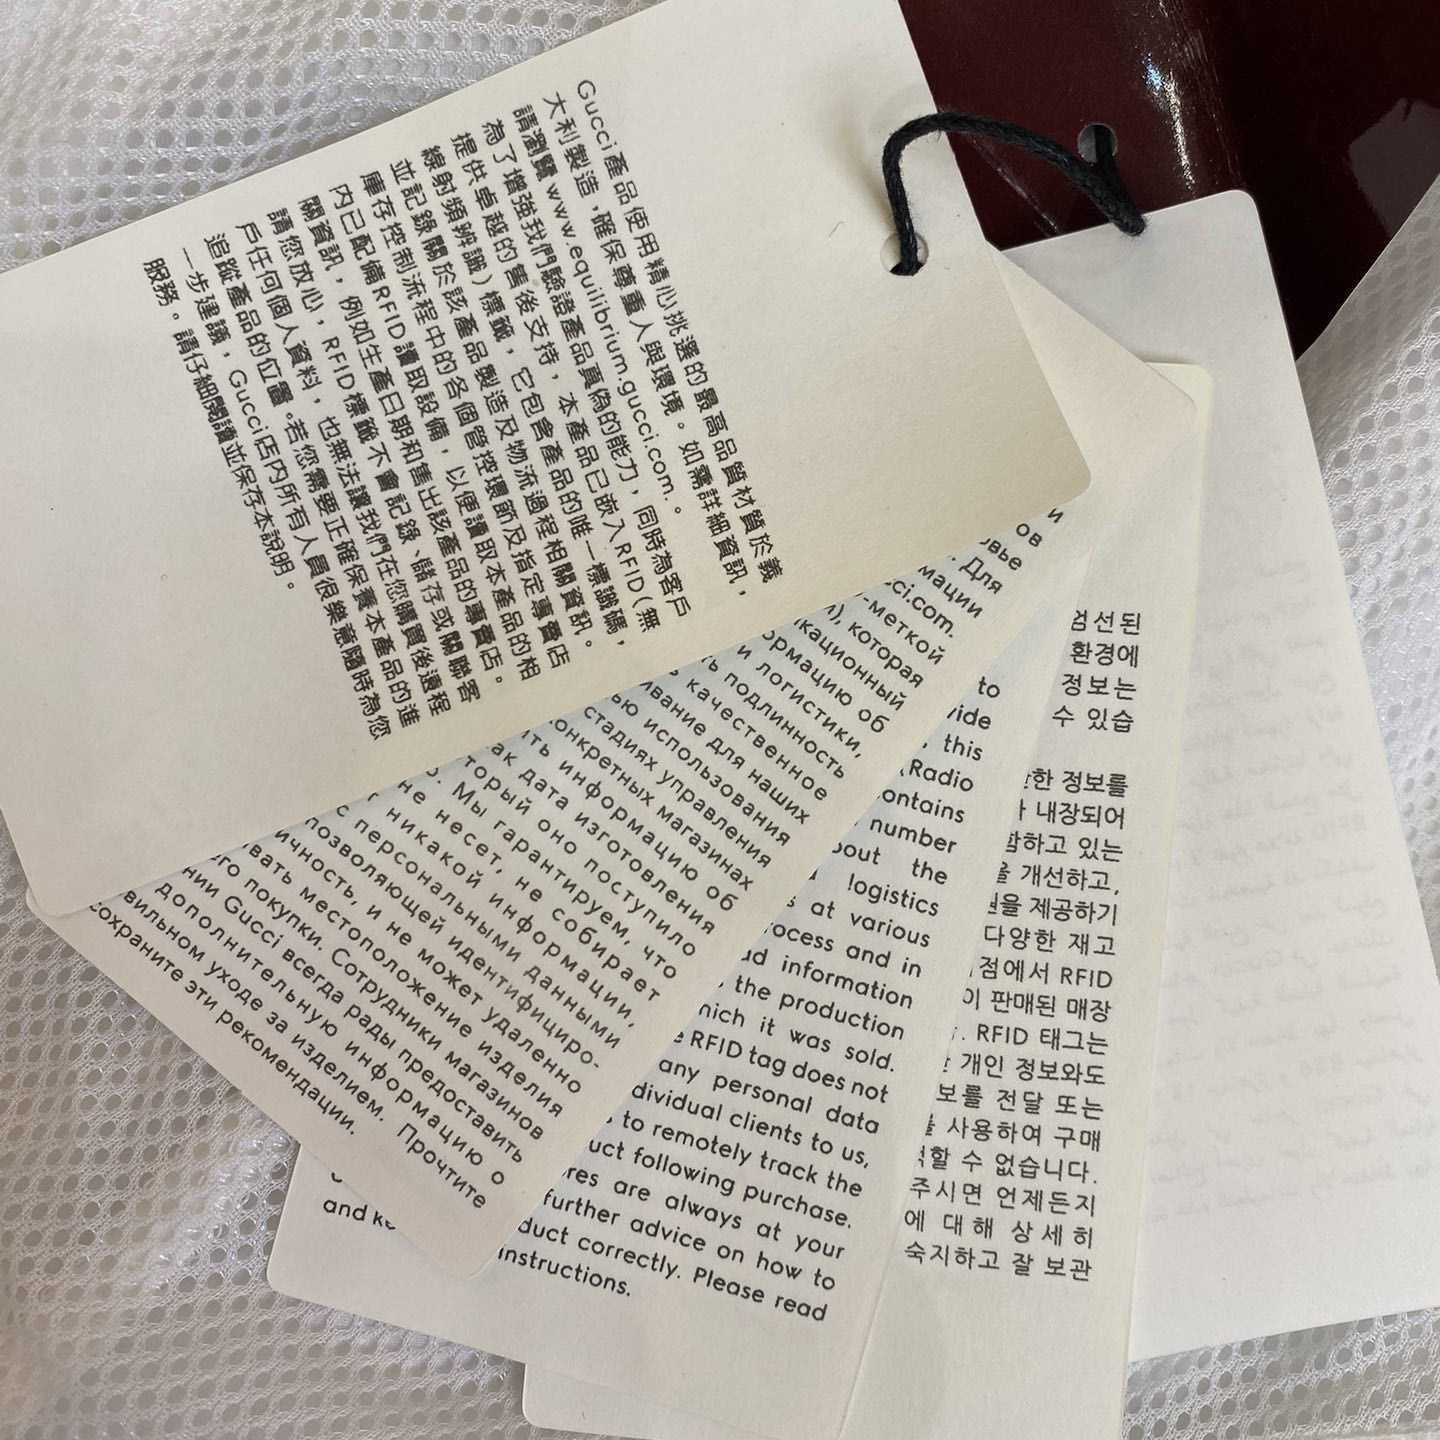 Gucci產品使用精心挑選的最高品質材質於義
大利製造，確保尊重人與環境。如需詳細資訊，
請瀏覽 www.equilibrium.gucci.com.。
為了增強我們驗證產品真偽的能力，同時為客戶
提供卓越的售後支持，本產品已嵌入RFID（無
線射頻辨識）標籤，它包含產品的唯一標識碼，
並記錄關於該產品製造及物流過程相關資訊。
庫存控制流程中的各個管控環節及指定專賣店
內已配備RFID讀取設備，以便讀取本產品的相
關資訊，例如生產日期和售出該產品的專賣店。
請您放心，RFID標籤不會記錄、儲存或關聯客
戶任何個人資料，也無法讓我們在您購買後遠程
追蹤產品的位置。若您需要正確保養本產品的進
一步建議，Gucci店內所有人員很樂意隨時為您
服務。請仔細閱讀並保存本說明。
и
ов
Для
мации
ci.com.
-меткой
которая
кационный
ормацию об
и логистики,
подлинность
качественное
ивание для наших
использования
стадиях управления
онкретных магазинах
ить информацию об
как дата изготовления
торый оно поступило
Мы гарантируем, что
не несет, не собирает
никакой информации,
с персональными данными
позволяющей идентифициро-
ичность, и не может удаленно
ивать местоположение изделия
его покупки. Сотрудники магазинов
нии Gucci всегда рады предоставить
дополнительную информацию о
вильном уходе за изделием. Прочтите
сохраните эти рекомендации.
to
vide
this
(Radio
ontains
number
bout the
logistics
at various
rocess and in
ad information
the production
hich it was sold.
RFID tag does not
any personal data
dividual clients to us,
to remotely track the
uct following purchase.
res are always at your
further advice on how to
duct correctly. Please read
and
instructions.
엄선된
환경에
정보는
수 있습
한 정보를
내장되어
합하고 있는
을 개선하고,
을 제공하기
다양한 재고
점에서 RFID
이 판매된 매장
RFID 태그는
개인 정보와도
보를 전달 또는
사용하여 구매
할 수 없습니다.
주시면 언제든지
에 대해 상세히
숙지하고 잘 보관